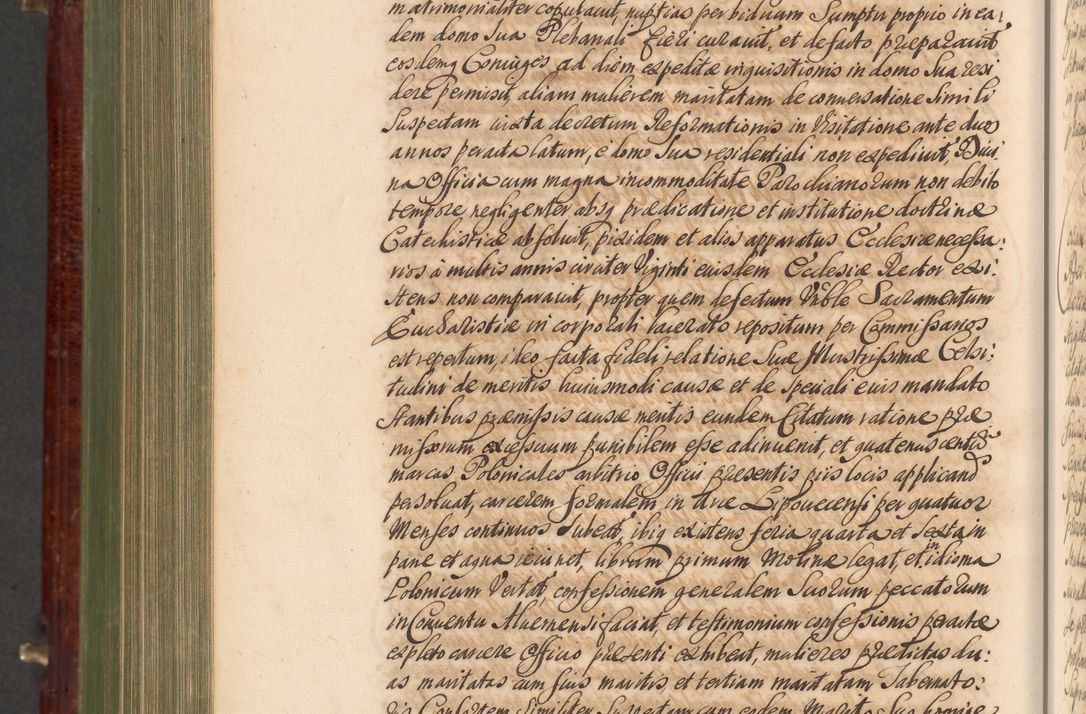 matrimonialiter copulavit, nuptias per biduum Sumptu proprio in ea:
dem domo sua Plebanali fieri curavit, et de facto præparavit
eosdemq Coniuges ad diem expeditæ inquisitionis in domo sua resi
dere permisit, aliam mulierem maritatam de conversatione simili
Suspectam iuxta decretum Reformationis in Visitatione ante duos
annos peracta latum, e domo sua residentiali non expedivit, Divi:
na Officia cum magna incommoditate Parochianorum non debito
tempore, negligenter absq prædicatione et institutione doctrinæ
Catechisticæ absolvit, pixidem et alios apparatus Ecclesiæ necessa:
rios à multis annis circiter Viginti eiusdem Ecclesiæ Rector exi:
stens non comparavit, propter quem defectum Vrble Sacramentum
Eucharistiæ in corporali lacerato repositum per Commissarios
est repertum, ideo facta fideli relatione Suæ Illustrissimæ Celsi:
tudini de meritis huiusmodi causæ et de speciali eius mandato
stantibus præmissis causæ meritis eundem Citatum ratione præ
missorum excessuum punibilem esse adinvenit, et quatenus centũ
marcas Polonicales arbitrio Officii præsentis piis locis applicand
persolvat, carcerem formalem in Arce Lipovecensi per quatuor
Menses continuos subeat, ibiq existens feria quarta et sexta in
pane et aqua ieiunet, librum primum Molinæ legat, et in idioma
Polonicum Vertat, confessionem generalem Suorum peccatorum
in Conventu Alvernensi faciat, et testimonium confessionis peractæ
expleto carcere Officio præsenti exhibeat, mulieres prædictas du:
as maritatas cum suis maritis, et tertiam maritatam Tabernato:
ris Consortem Similiter Suspectam cum eodem Marito Suo homine